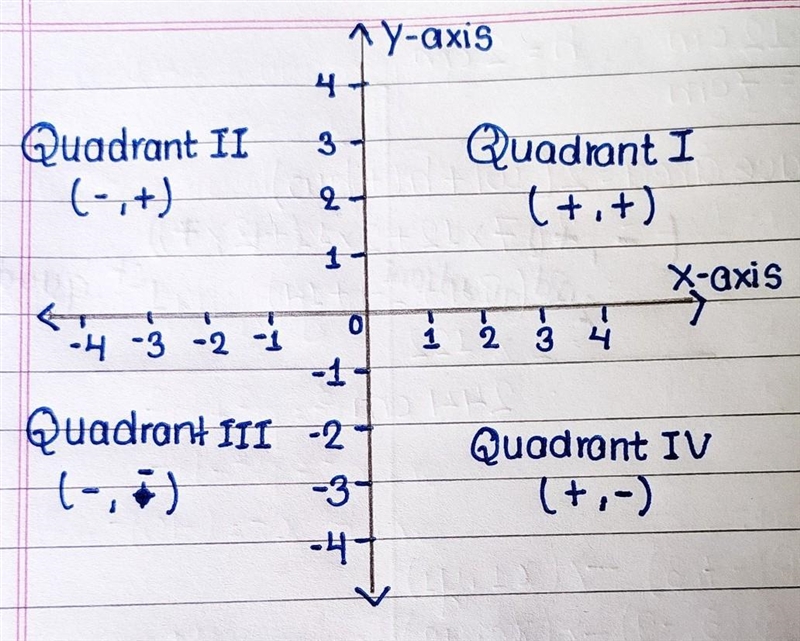 y-axis
4
Quadrant II
3
Quadrant I
(-,+)
2
(+,+)
1
x-axis
-4 -3 -2 -1 0 1 2 3 4
-1
Quadrant III
-2
Quadrant IV
(-, -)
-3
(+,-)
-4